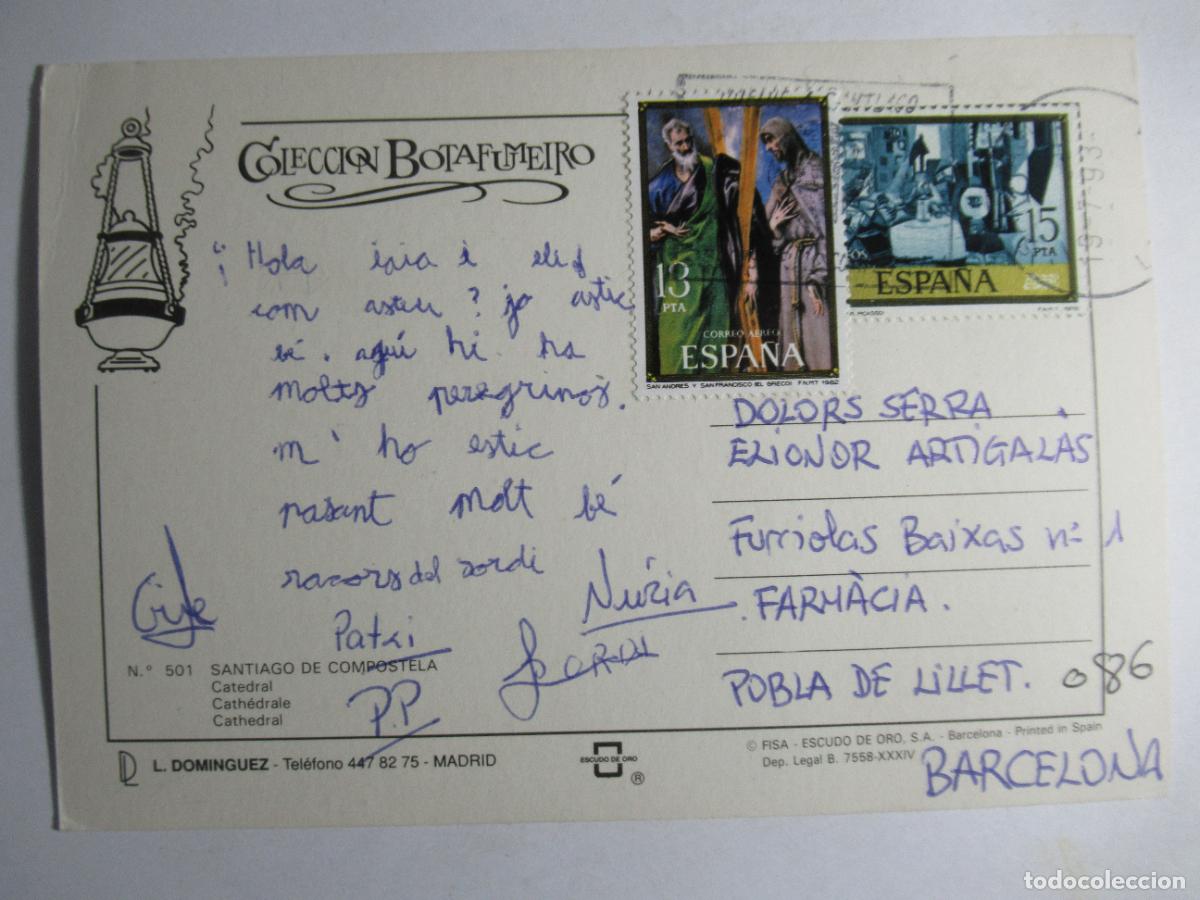 COLECCION BOTAFUMEIRO
Hola i
com esteu ? jo estic
bé. aquí hi ha
molts peregrinos.
m' ho estic
pasant molt bé
records del Jordi
Núria
Patxi
JORDI
P.P
13
PTA
CORREO AEREO
ESPAÑA
SAN ANDRES Y SAN FRANCISCO (EL GRECO) F.N.M.T. 1982
15
PTA
ESPAÑA
19-7-93
DOLORS SERRA
ELIONOR ARTIGALÀS
Furriolas Baixas nº 1
FARMÀCIA.
POBLA DE LILLET. 086
BARCELONA
N.º 501 SANTIAGO DE COMPOSTELA
Catedral
Cathédrale
Cathedral
L. DOMINGUEZ - Teléfono 447 82 75 - MADRID
ESCUDO DE ORO
®
© FISA - ESCUDO DE ORO, S.A. - Barcelona - Printed in Spain
Dep. Legal B. 7558-XXXIV
todocoleccion